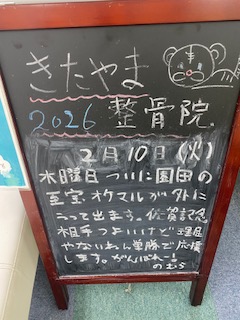 きたやま
2026 整骨院
2月10日(火)
木曜日ついに園田の
至宝オケマルが外に
でて出ます。佐賀記念
相手つよいけど理屈
やないねん単勝で応援
します。がんばれー!
のむら